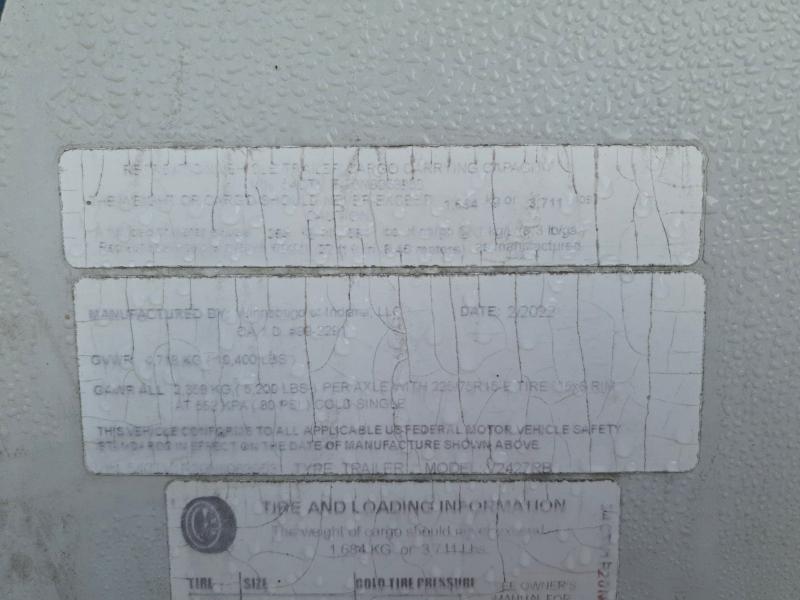 TRAILER CARGO CARRYING CAPACITY
THE WEIGHT OF CARGO SHOULD NEVER EXCEED 1,684 KG or 3,711 lbs
as manufactured
MANUFACTURED BY: Winnebago of Indiana, LLC DATE: 2/2022
GVWR 4,718 KG (10,400 LBS)
GAWR ALL 2,359 KG (5,200 LBS) PER AXLE WITH 225/75R15-E TIRE 15x6 RIM
AT 552 KPA (80 PSI) COLD SINGLE
THIS VEHICLE CONFORMS TO ALL APPLICABLE US FEDERAL MOTOR VEHICLE SAFETY
STANDARDS IN EFFECT ON THE DATE OF MANUFACTURE SHOWN ABOVE
TYPE: TRAILER MODEL V2427RB
TIRE AND LOADING INFORMATION
The weight of cargo should never exceed
1,684 KG or 3,711 Lbs.
TIRE SIZE COLD TIRE PRESSURE SEE OWNER'S
MANUAL FOR